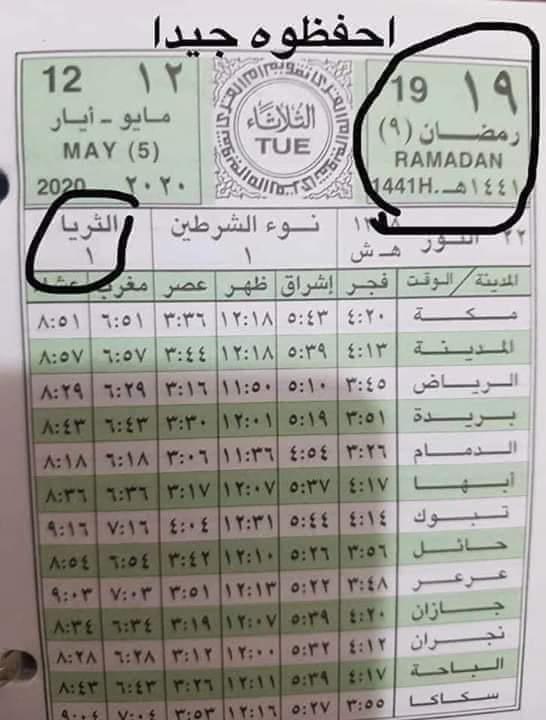 احفظوه جيدا
١٩ 19
رمضان (٩)
RAMADAN
١٤٤١هـ 1441H.
الثلاثاء
TUE
١٢ 12
مايو - أيار
MAY (5)
٢٠٢٠ 2020
٢٢ الثور
هـ ش
نوء الشرطين
١
الثريا
١
المدينة / الوقت فجر إشراق ظهر عصر مغرب
مكة ٤:٢٠ ٥:٤٣ ١٢:١٨ ٣:٣٦ ٦:٥١ ٨:٥١
المدينة ٤:١٣ ٥:٣٩ ١٢:١٨ ٣:٤٤ ٦:٥٧ ٨:٥٧
الرياض ٣:٤٥ ٥:١٠ ١١:٥٠ ٣:١٦ ٦:٢٩ ٨:٢٩
بريدة ٣:٥١ ٥:١٩ ١٢:٠١ ٣:٣٠ ٦:٤٣ ٨:٤٣
الدمام ٣:٢٦ ٤:٥٤ ١١:٣٦ ٣:٠٦ ٦:١٨ ٨:١٨
أبها ٤:١٧ ٥:٣٧ ١٢:٠٧ ٣:١٧ ٦:٣٦ ٨:٣٦
تبوك ٤:١٤ ٥:٤٤ ١٢:٣١ ٤:٠٤ ٧:١٦ ٩:١٦
حائل ٣:٥٦ ٥:٢٦ ١٢:١٠ ٣:٤٢ ٦:٥٤ ٨:٥٤
عرعر ٣:٤٨ ٥:٢٢ ١٢:١٣ ٣:٥١ ٧:٠٣ ٩:٠٣
جازان ٤:٢٠ ٥:٣٩ ١٢:٠٧ ٣:١٩ ٦:٣٤ ٨:٣٤
نجران ٤:١٢ ٥:٣٢ ١٢:٠٠ ٣:١٢ ٦:٢٨ ٨:٢٨
الباحة ٤:١٧ ٥:٣٩ ١٢:١١ ٣:٢٦ ٦:٤٣ ٨:٤٣
سكاكا ٣:٥٥ ٥:٢٧ ١٢:١٦ ٣:٥٣ ٧:٠٤ ٩:٠٤